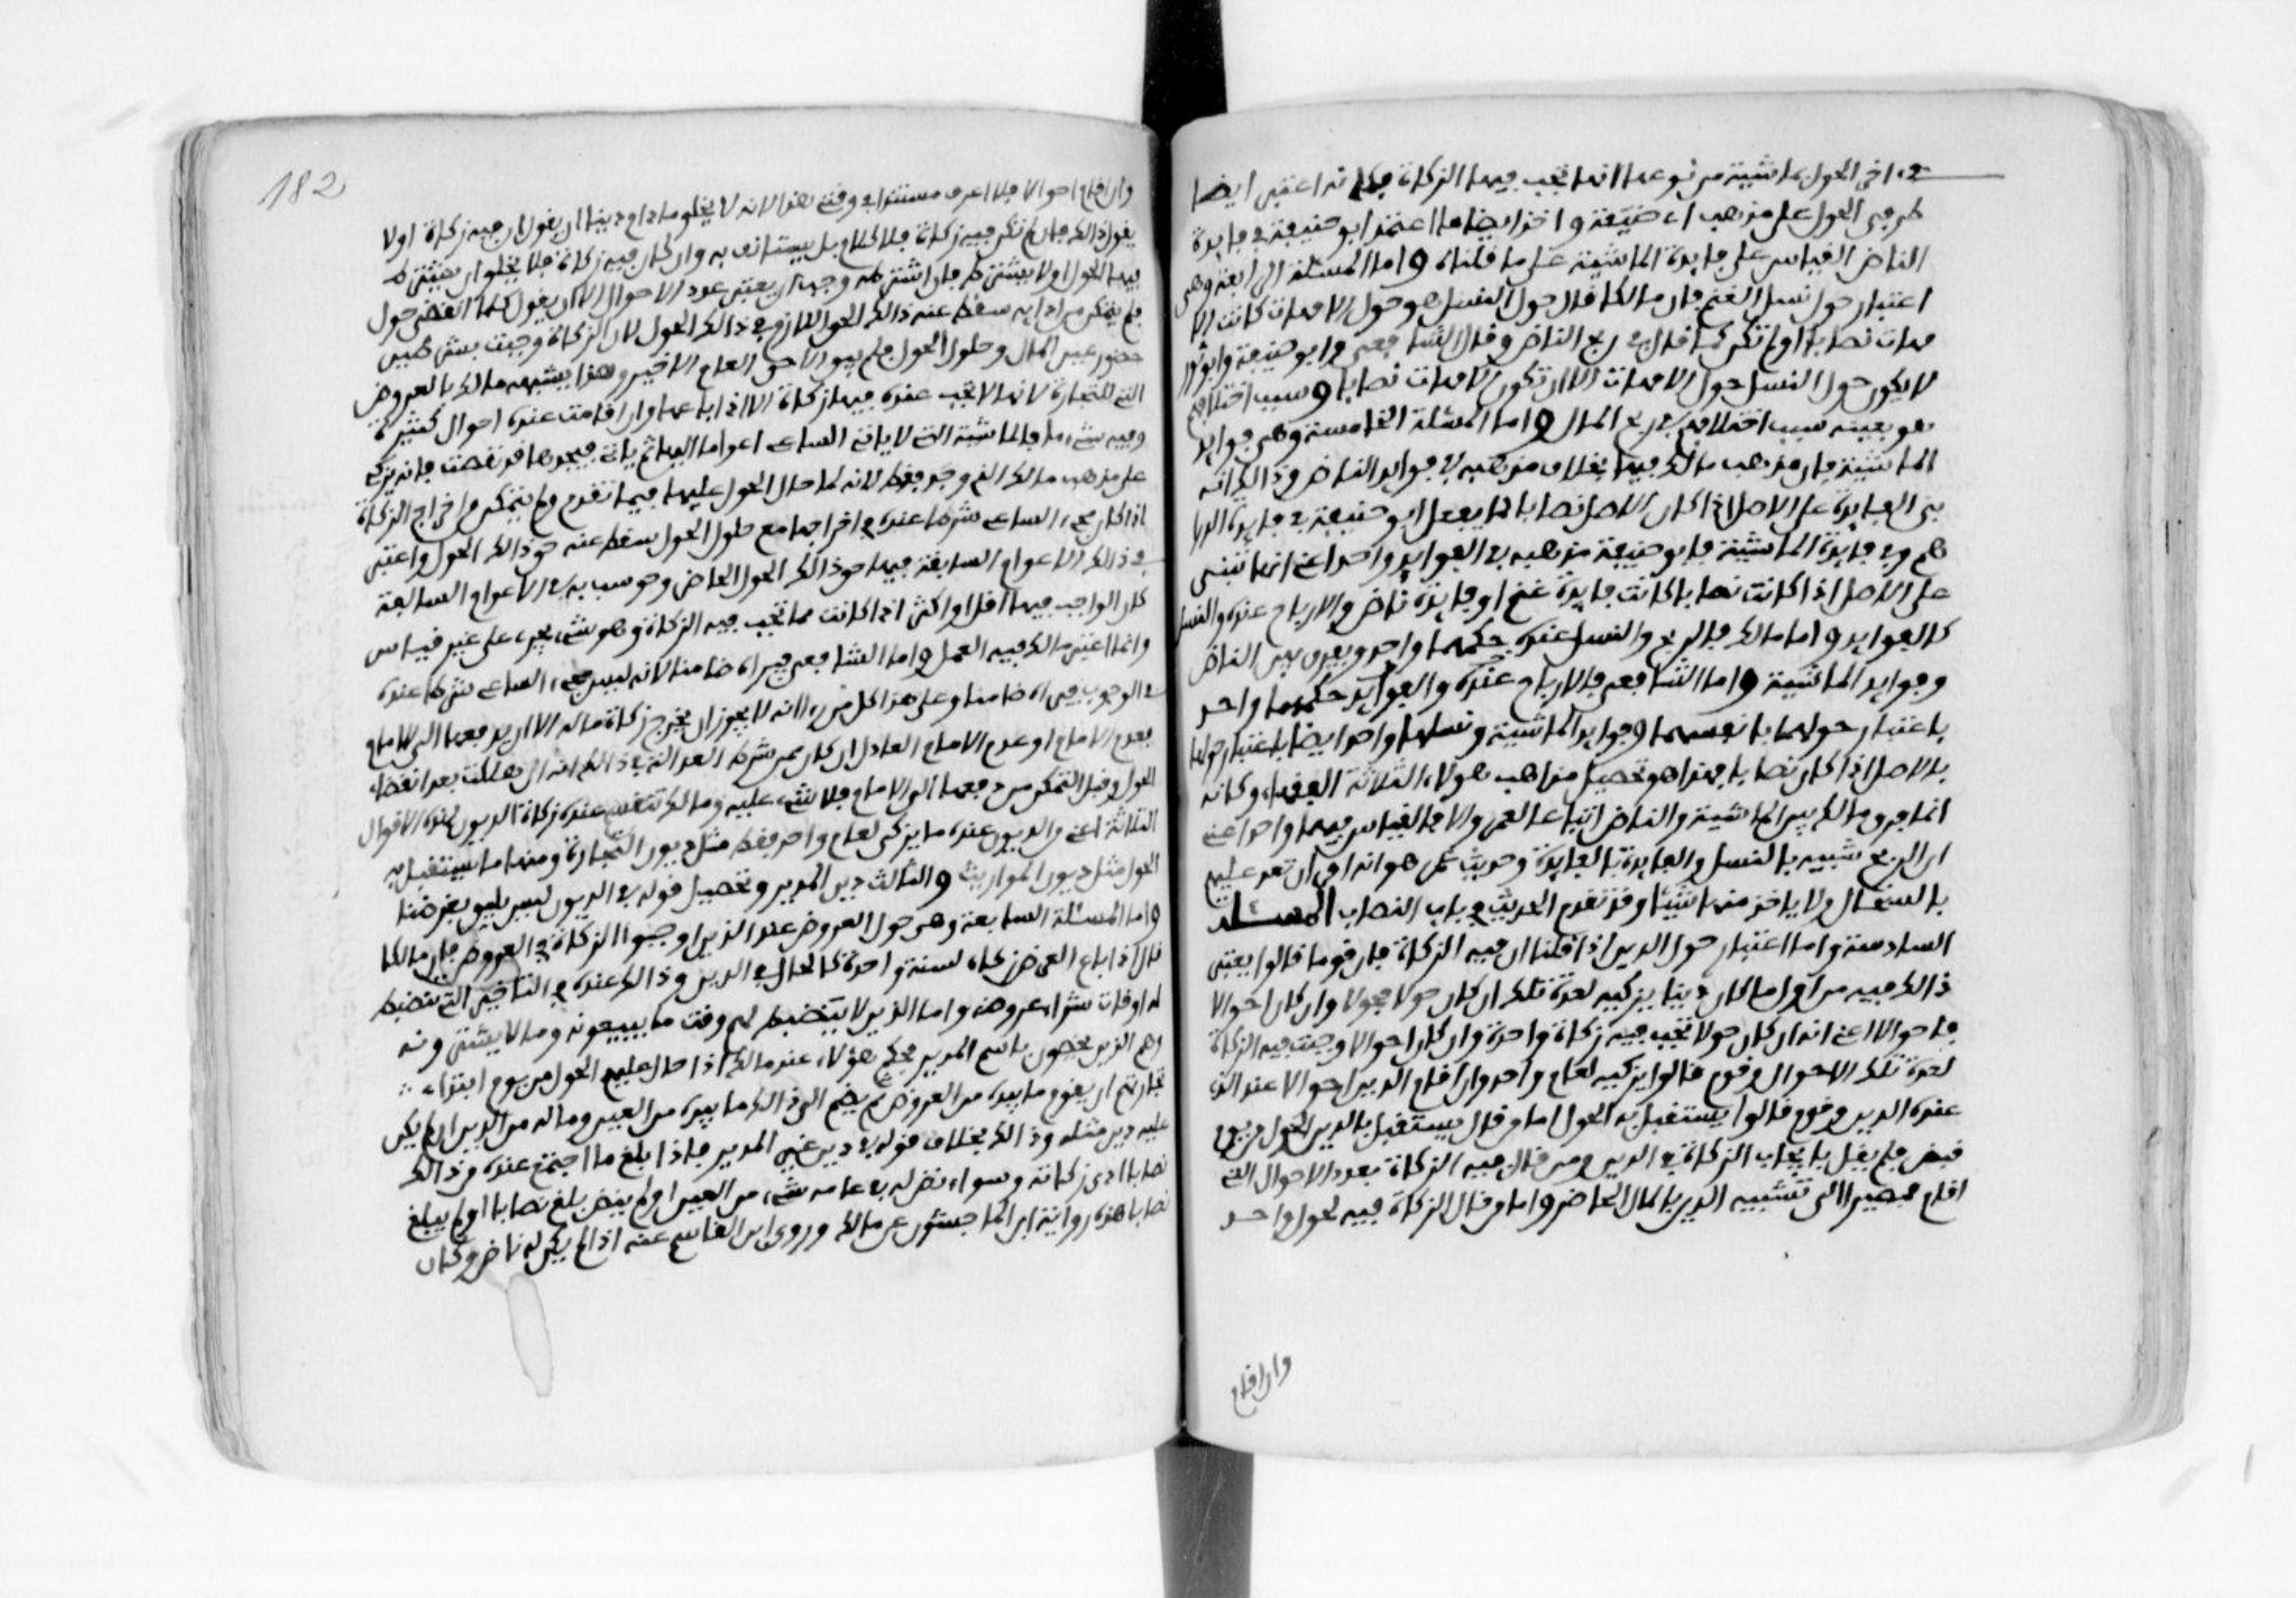 في اخر الحول ماشية من نوعها انها تجب فيها الزكاة فكانه اعتبر ايضا
طرفي الحول على مذهب ابي حنيفة واخذ ايضا ما اعتمد ابو حنيفة في فايدة
الناض القياس على فايدة الماشية على ما قلناه واما المسئلة الرابعة وهي
اعتبار حول نسل الغنم فان مالكا قال حول النسل هو حول الامهات كانت الا
مهات نصابا او لم تكن كما قال في ربح الناض وقال الشافعي وابو حنيفة وابو ثور
لا يكون حول النسل حول الامهات الا ان تكون الامهات نصابا وسبب اختلافهم
هو بعينه سبب اختلافهم في ربح المال واما المسئلة الخامسة وهي فوايد
الماشية فان مذهب مالك فيها بخلاف مذهبه في فوايد الناض وذالك انه
يبني الفايدة على الاصل اذا كان الاصل نصابا كما يفعل ابو حنيفة في فايدة الدرا
هم وفي فايدة الماشية فابو حنيفة مذهبه في الفوايد واحد اعني انها تبنى
على الاصل اذا كانت نصابا كانت فايدة غنم او فايدة ناض والارباح عنده والنسل
كالفوايد واما مالك فالربح والنسل عنده حكمهما واحد ويفرق بين الناض
وفوايد الماشية واما الشافعي فالارباح عنده والفوايد حكمهما واحد
باعتبار حولهما بانفسهما وفوايد الماشية ونسلها واحد ايضا باعتبار حولها
بالاصل اذا كان نصابا فهذا هو تحصيل مذاهب هولاء الثلاثة الفقهاء وكانه
انما فرق مالك بين الماشية والناض اتباعا لعمر والا فالقياس فيهما واحد اعني
ان الربح شبيه بالنسل والفايدة بالفايدة وحديث عمر هو انه امر ان تعد عليهم
بالسخال ولا ياخذ منها شيئا وقد تقدم الحديث في باب النصاب المسئلة
السادسة واما اعتبار حول الدين اذا قلنا ان فيه الزكاة فان قوما قالوا يعتبر
ذالك فيه من اول ما كان دينا يزكيه لعدة تلك ان كان حولا فحولا وان كان احوالا
فاحوالا اعني انه ان كان حولا تجب فيه زكاة واحدة وان كان احوالا وجبت فيه الزكاة
لعدة تلك الاحوال وقوم قالوا يزكيه لعام واحد وان اقام الدين احوالا عند الذي
عنده الدين وقوم قالوا يستقبل به الحول اما من قال يستقبل بالدين الحول من يوم
قبض فلم يقل بايجاب الزكاة في الدين ومن قال فيه الزكاة بعدد الاحوال التي
اقام فمصيرا الى تشبيه الدين بالمال الحاضر واما من قال الزكاة فيه لحول واحد
وان اقام
182
وان اقام احوالا فلا اعرف مستندا في وقتي هذا لانه لا يخلو ما دام دينا ان يقول ان فيه زكاة اولا
يقول ذالك فان لم تكن فيه زكاة فلا كلام بل يستانف به وان كان فيه زكاة فلا يخلو ان يشترط
فيها الحول اولا يشترط فان اشترط وجب ان يعتبر عدد الاحوال الا ان يقول كلما انقضى حول
فلم يتمكن من ادايه سقط عنه ذالك الحق اللازم في ذالك الحول لان الزكاة وجبت بشرطين
حضور عين المال وحلول الحول فلم يبق الا حق العام الاخير وهذا يشبهه مالك بالعروض
التي للتجارة لانها لا تجب عنده فيها زكاة الا اذا باعها وان اقامت عنده احوال كثيرة
وفيه شيء ما فالماشية التي لا ياتي الساعي اعواما اليها ثم ياتي فيجدها قد نقصت فانه يزكي
على مذهب مالك الذي وجد فقط لانه لما حال الحول عليها فيما تقدم ولم يتمكن من اخراج الزكاة
اذ كان مجيء الساعي شرطا عنده في اخراجها مع حلول الحول سقط عنه حق ذالك الحول واعتبر
في ذالك الاعوام السابقة فيها حق ذالك الحول الحاضر وحوسب به في الاعوام السالفة
كان الواجب فيها اقل او اكثر اذا كانت مما تجب فيه الزكاة وهو شيء يجري على غير قياس
وانما اعتبر مالك فيه العمل واما الشافعي فيراه ضامنا لانه ليس مجيء الساعي شرطا عنده
في الوجوب فيراه ضامنا وعلى هذا كل من راى انه لا يجوز ان يخرج زكاة ماله الا ان يدفعها الى الامام
بعدم الامام او عدم الامام العادل ان كان ممن شرط العدالة في ذالك انه ان هلكت بعد انقضاء
الحول وقبل التمكن من دفعها الى الامام فلا شيء عليه ومالك تنقسم عنده زكاة الديون لهذه الاقوال
الثلاثة اعني ان الديون عنده ما يزكى لعام واحد فقط مثل ديون التجارة ومنها ما يستقبل به
الحول مثل ديون المواريث والثالث دين المدير وتحصيل قوله في الديون ليس يليق بغرضنا
واما المسئلة السابعة وهي حول العروض عند الذين اوجبوا الزكاة في العروض فان مالكا
قال اذا باع العرض زكاه لسنة واحدة كالحال في الدين وذالك عنده في التاجر الذي تنضبط
له اوقات شراء عروضه واما الذين لا ينضبط لهم وقت ما يبيعونه وما لا يشترونه
وهم الذين يخصون باسم المدير فحكم هؤلاء عند مالك اذا حال عليهم الحول من يوم ابتداء
تجارتهم ان يقوم ما بيده من العروض ثم يضم الى ذالك ما بيده من العين وما له من الدين ان لم يكن
عليه دين مثله وذالك بخلاف قوله في دين غير المدير فاذا بلغ ما اجتمع عنده من ذالك
نصابا ادى زكاته وسواء نض له في عامه شيء من العين اولم ينض بلغ نصابا اولم يبلغ
نصابا هذه رواية ابن الماجشون عن مالك وروى ابن القاسم عنه اذا لم يكن له ناض وكان